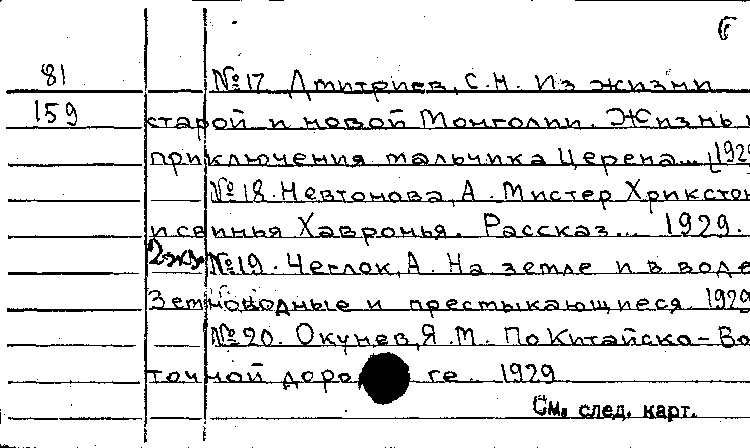 б
81 №17 Дмитриев, С.Н. Из жизни
159 старой и новой Монголии. Жизнь и
приключения мальчика Церена... [1929
№18. Невтонова, А. Мистер Хрикстон
и свинья Хавронья. Рассказ... 1929.
2экз №19. Чеглок, А. На земле и в воде
Земноводные и пресмыкающиеся. 1929
№20. Окунев, Я.М. По Китайско-Вос
точной дороге. 1929
См. след. карт.